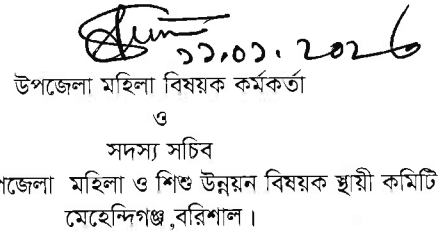 ১১.০১.২০২৬
উপজেলা মহিলা বিষয়ক কর্মকর্তা
ও
সদস্য সচিব
পজেলা মহিলা ও শিশু উন্নয়ন বিষয়ক স্থায়ী কমিটি
মেহেন্দিগঞ্জ,বরিশাল।